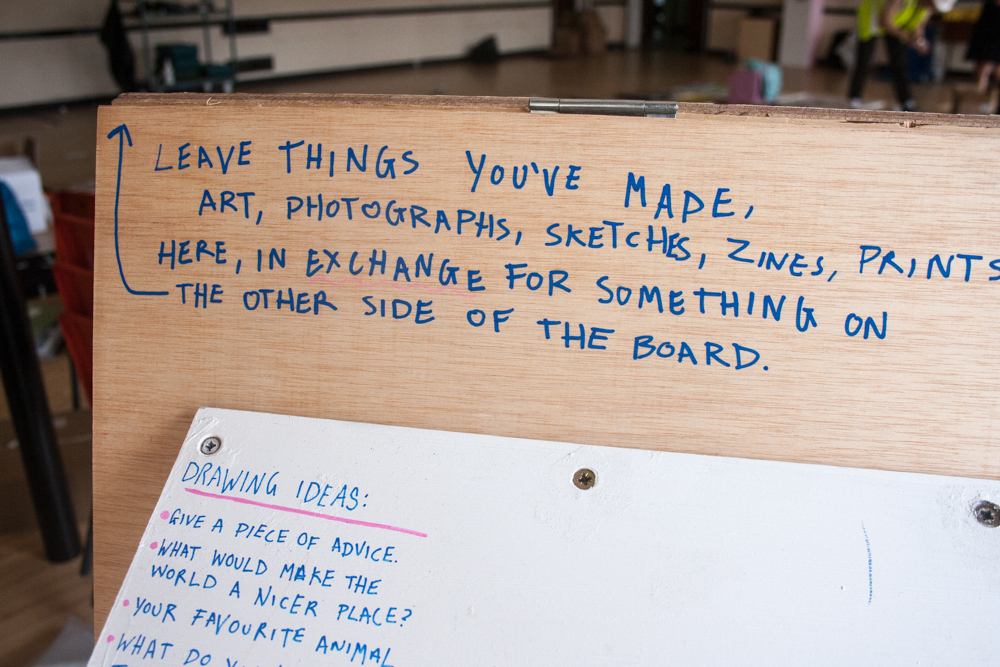 LEAVE THINGS YOU'VE MADE,
ART, PHOTOGRAPHS, SKETCHES, ZINES, PRINTS
HERE, IN EXCHANGE FOR SOMETHING ON
THE OTHER SIDE OF THE BOARD.
DRAWING IDEAS:
• GIVE A PIECE OF ADVICE.
• WHAT WOULD MAKE THE
WORLD A NICER PLACE?
• YOUR FAVOURITE ANIMAL
• WHAT DO